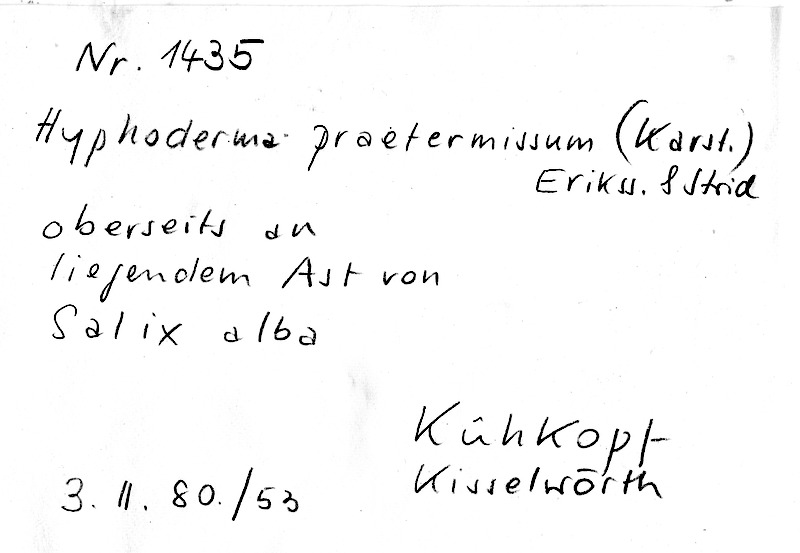 Nr. 1435
Hyphoderma praetermissum (Karst.)
Erikss. & Strid
oberseits an
liegendem Ast von
Salix alba
Kühkopf
Kisselwörth
3. 11. 80. / 53